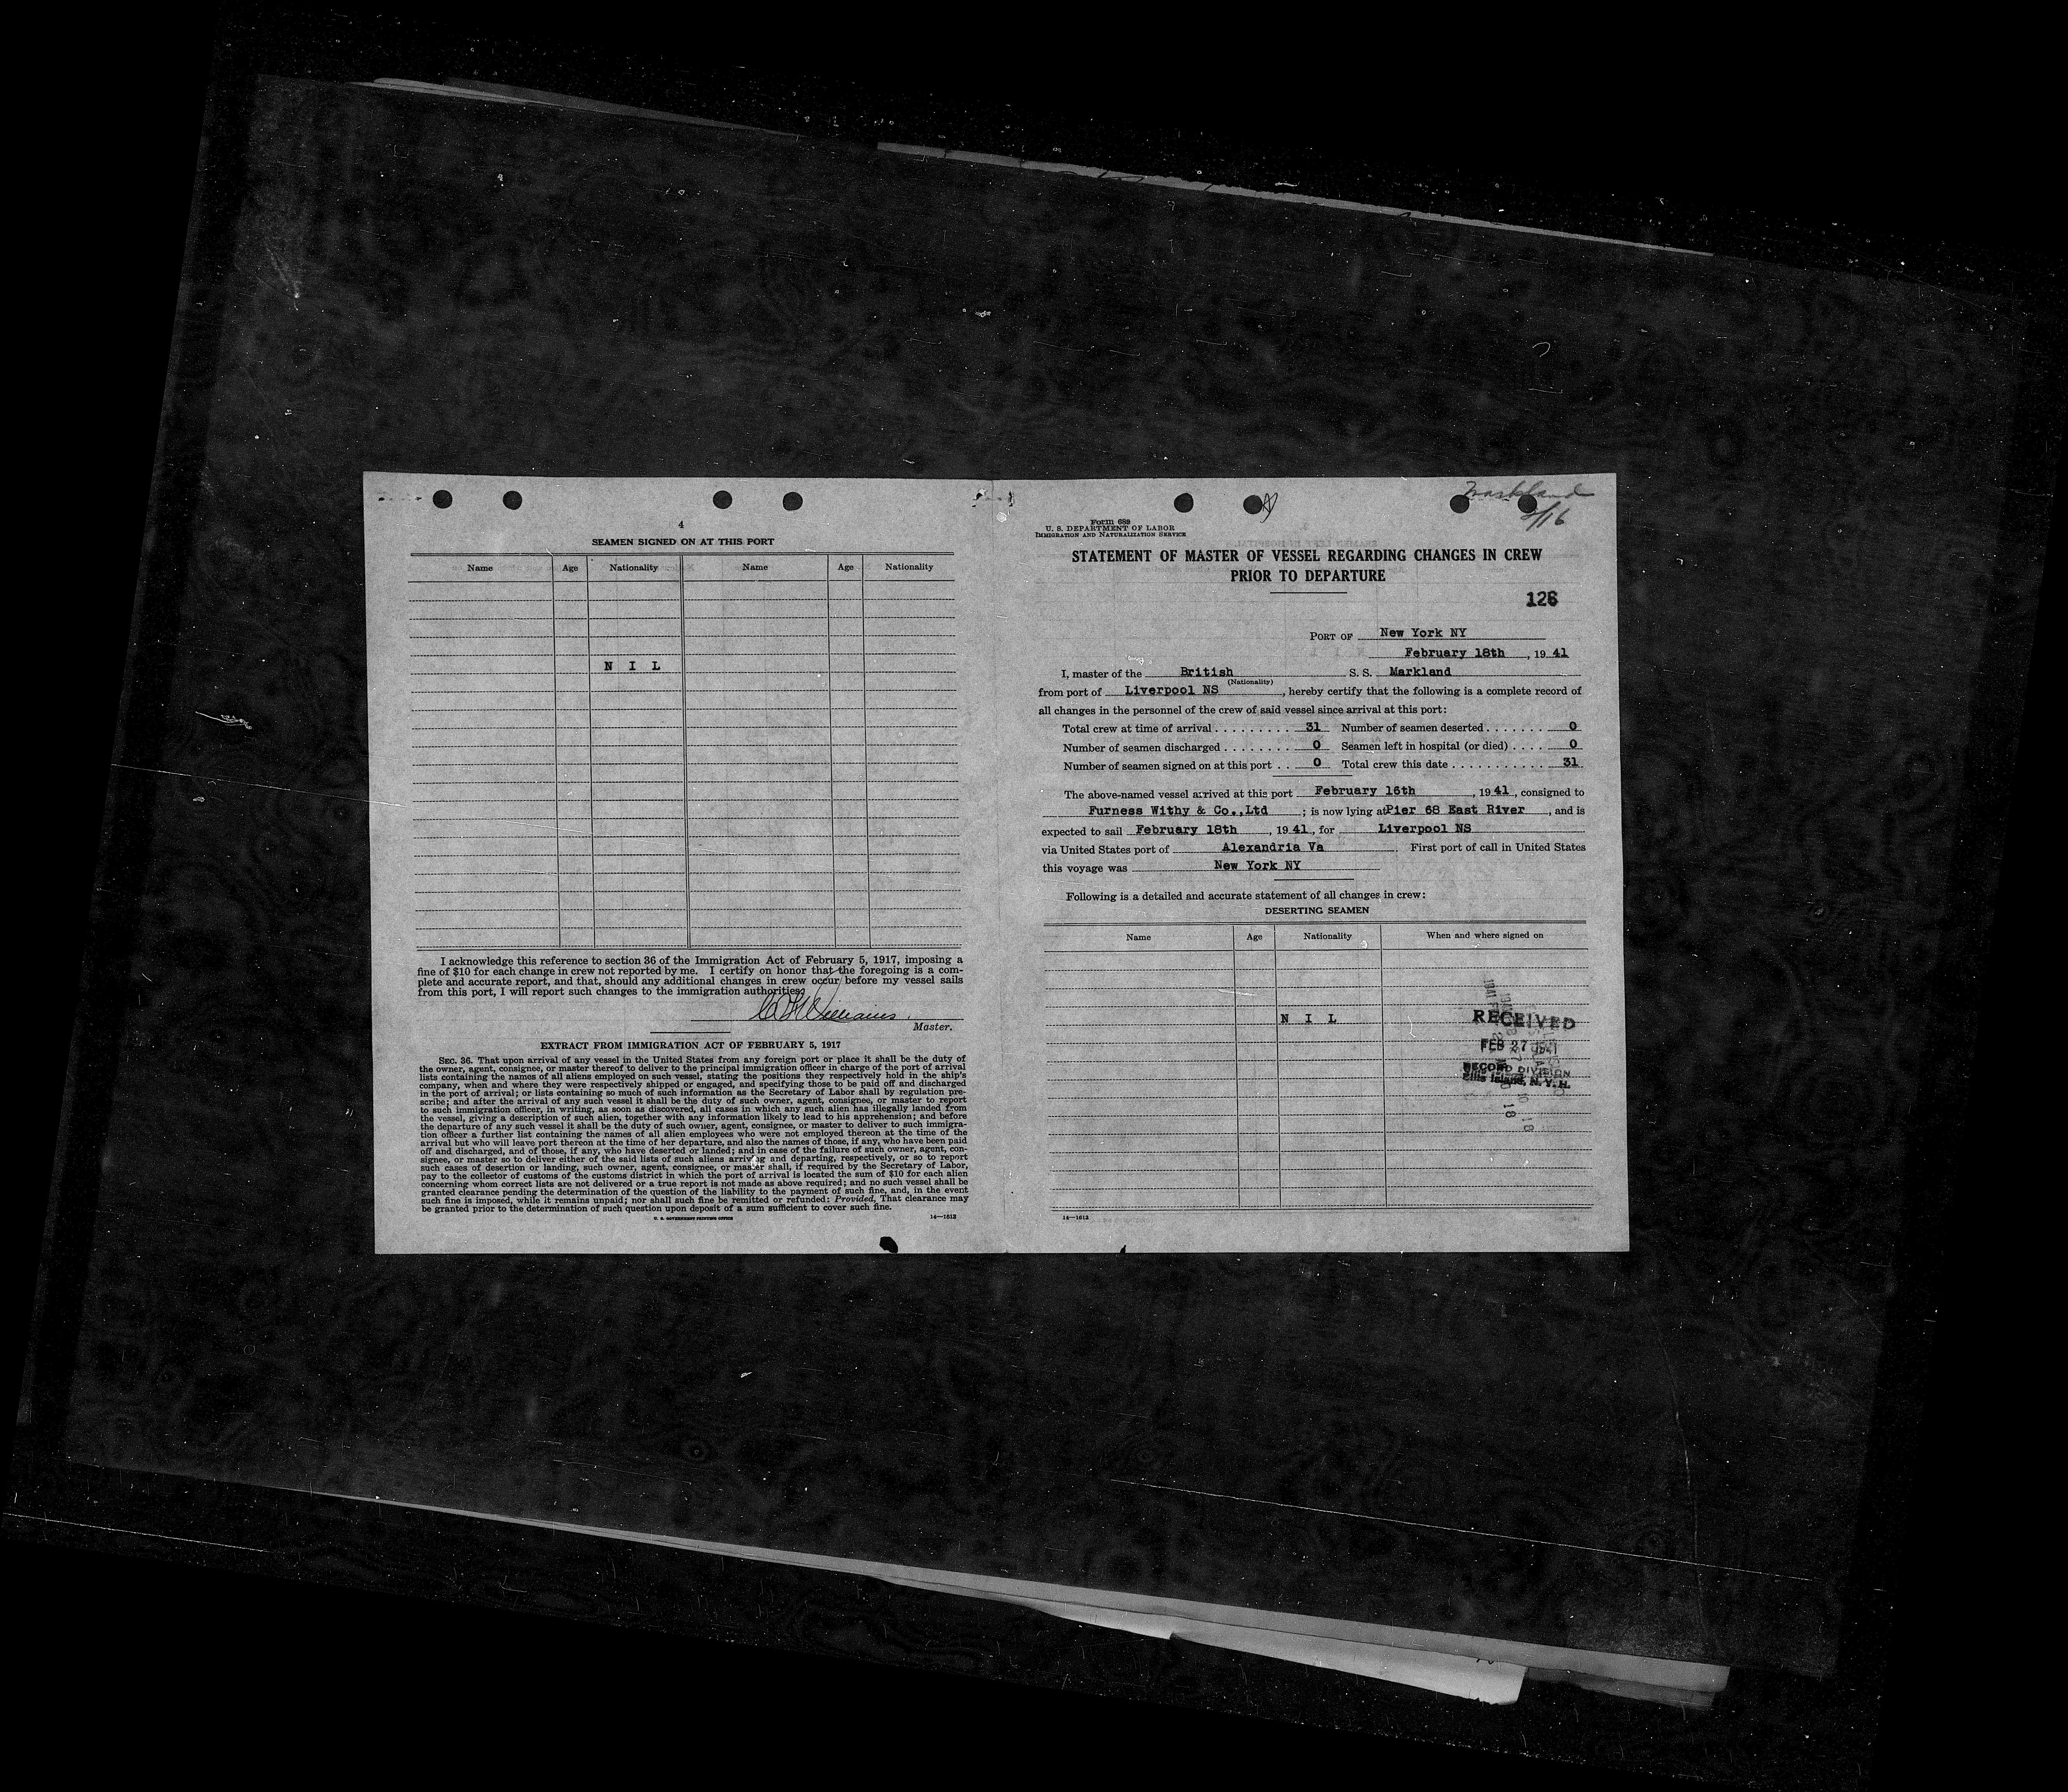 4
SEAMEN SIGNED ON AT THIS PORT
Name Age Nationality Name Age Nationality
N I L
I acknowledge this reference to section 36 of the Immigration Act of February 5, 1917, imposing a
fine of $10 for each change in crew not reported by me. I certify on honor that the foregoing is a com-
plete and accurate report, and that, should any additional changes in crew occur before my vessel sails
from this port, I will report such changes to the immigration authorities.
Williams.
Master.
EXTRACT FROM IMMIGRATION ACT OF FEBRUARY 5, 1917
SEC. 36. That upon arrival of any vessel in the United States from any foreign port or place it shall be the duty of
the owner, agent, consignee, or master thereof to deliver to the principal immigration officer in charge of the port of arrival
lists containing the names of all aliens employed on such vessel, stating the positions they respectively hold in the ship's
company, when and where they were respectively shipped or engaged, and specifying those to be paid off and discharged
in the port of arrival; or lists containing so much of such information as the Secretary of Labor shall by regulation pre-
scribe; and after the arrival of any such vessel it shall be the duty of such owner, agent, consignee, or master to report
to such immigration officer, in writing, as soon as discovered, all cases in which any such alien has illegally landed from
the vessel, giving a description of such alien, together with any information likely to lead to his apprehension; and before
the departure of any such vessel it shall be the duty of such owner, agent, consignee, or master to deliver to such immigra-
tion officer a further list containing the names of all alien employees who were not employed thereon at the time of the
arrival but who will leave port thereon at the time of her departure, and also the names of those, if any, who have been paid
off and discharged, and of those, if any, who have deserted or landed; and in case of the failure of such owner, agent, con-
signee, or master so to deliver either of the said lists of such aliens arriving and departing, respectively, or so to report
such cases of desertion or landing, such owner, agent, consignee, or master shall, if required by the Secretary of Labor,
pay to the collector of customs of the customs district in which the port of arrival is located the sum of $10 for each alien
concerning whom correct lists are not delivered or a true report is not made as above required; and no such vessel shall be
granted clearance pending the determination of the question of the liability to the payment of such fine, and, in the event
such fine is imposed, while it remains unpaid; nor shall such fine be remitted or refunded: Provided, That clearance may
be granted prior to the determination of such question upon deposit of a sum sufficient to cover such fine.
U. S. GOVERNMENT PRINTING OFFICE 14—1612
Markland
2/16
Form 689
U. S. DEPARTMENT OF LABOR
IMMIGRATION AND NATURALIZATION SERVICE
STATEMENT OF MASTER OF VESSEL REGARDING CHANGES IN CREW
PRIOR TO DEPARTURE
126
PORT OF New York NY
February 18th, 1941
I, master of the British S. S. Markland
(Nationality)
from port of Liverpool NS, hereby certify that the following is a complete record of
all changes in the personnel of the crew of said vessel since arrival at this port:
Total crew at time of arrival ......... 31 Number of seamen deserted ....... 0
Number of seamen discharged ........ 0 Seamen left in hospital (or died) .... 0
Number of seamen signed on at this port .. 0 Total crew this date ........... 31
The above-named vessel arrived at this port February 16th, 1941, consigned to
Furness Withy & Co.,Ltd ; is now lying at Pier 68 East River, and is
expected to sail February 18th, 1941, for Liverpool NS
via United States port of Alexandria Va. First port of call in United States
this voyage was New York NY
Following is a detailed and accurate statement of all changes in crew:
DESERTING SEAMEN
Name Age Nationality When and where signed on
N I L
RECEIVED
FEB 27 1941
RECORD DIVISION
Ellis Island, N.Y.H.
14—1612